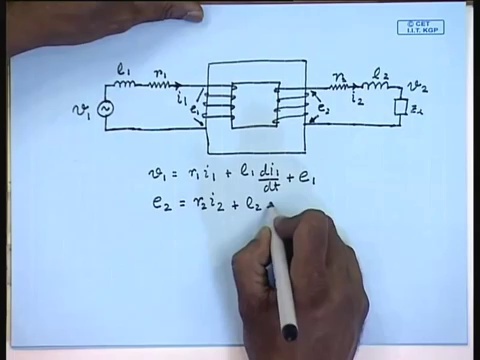 © CET
I.I.T. KGP
l₁ r₁ r₂ l₂
v₁ i₁ e₁ e₂ i₂ v₂ Z_L
v₁ = r₁i₁ + l₁ di₁/dt + e₁
e₂ = r₂i₂ + l₂